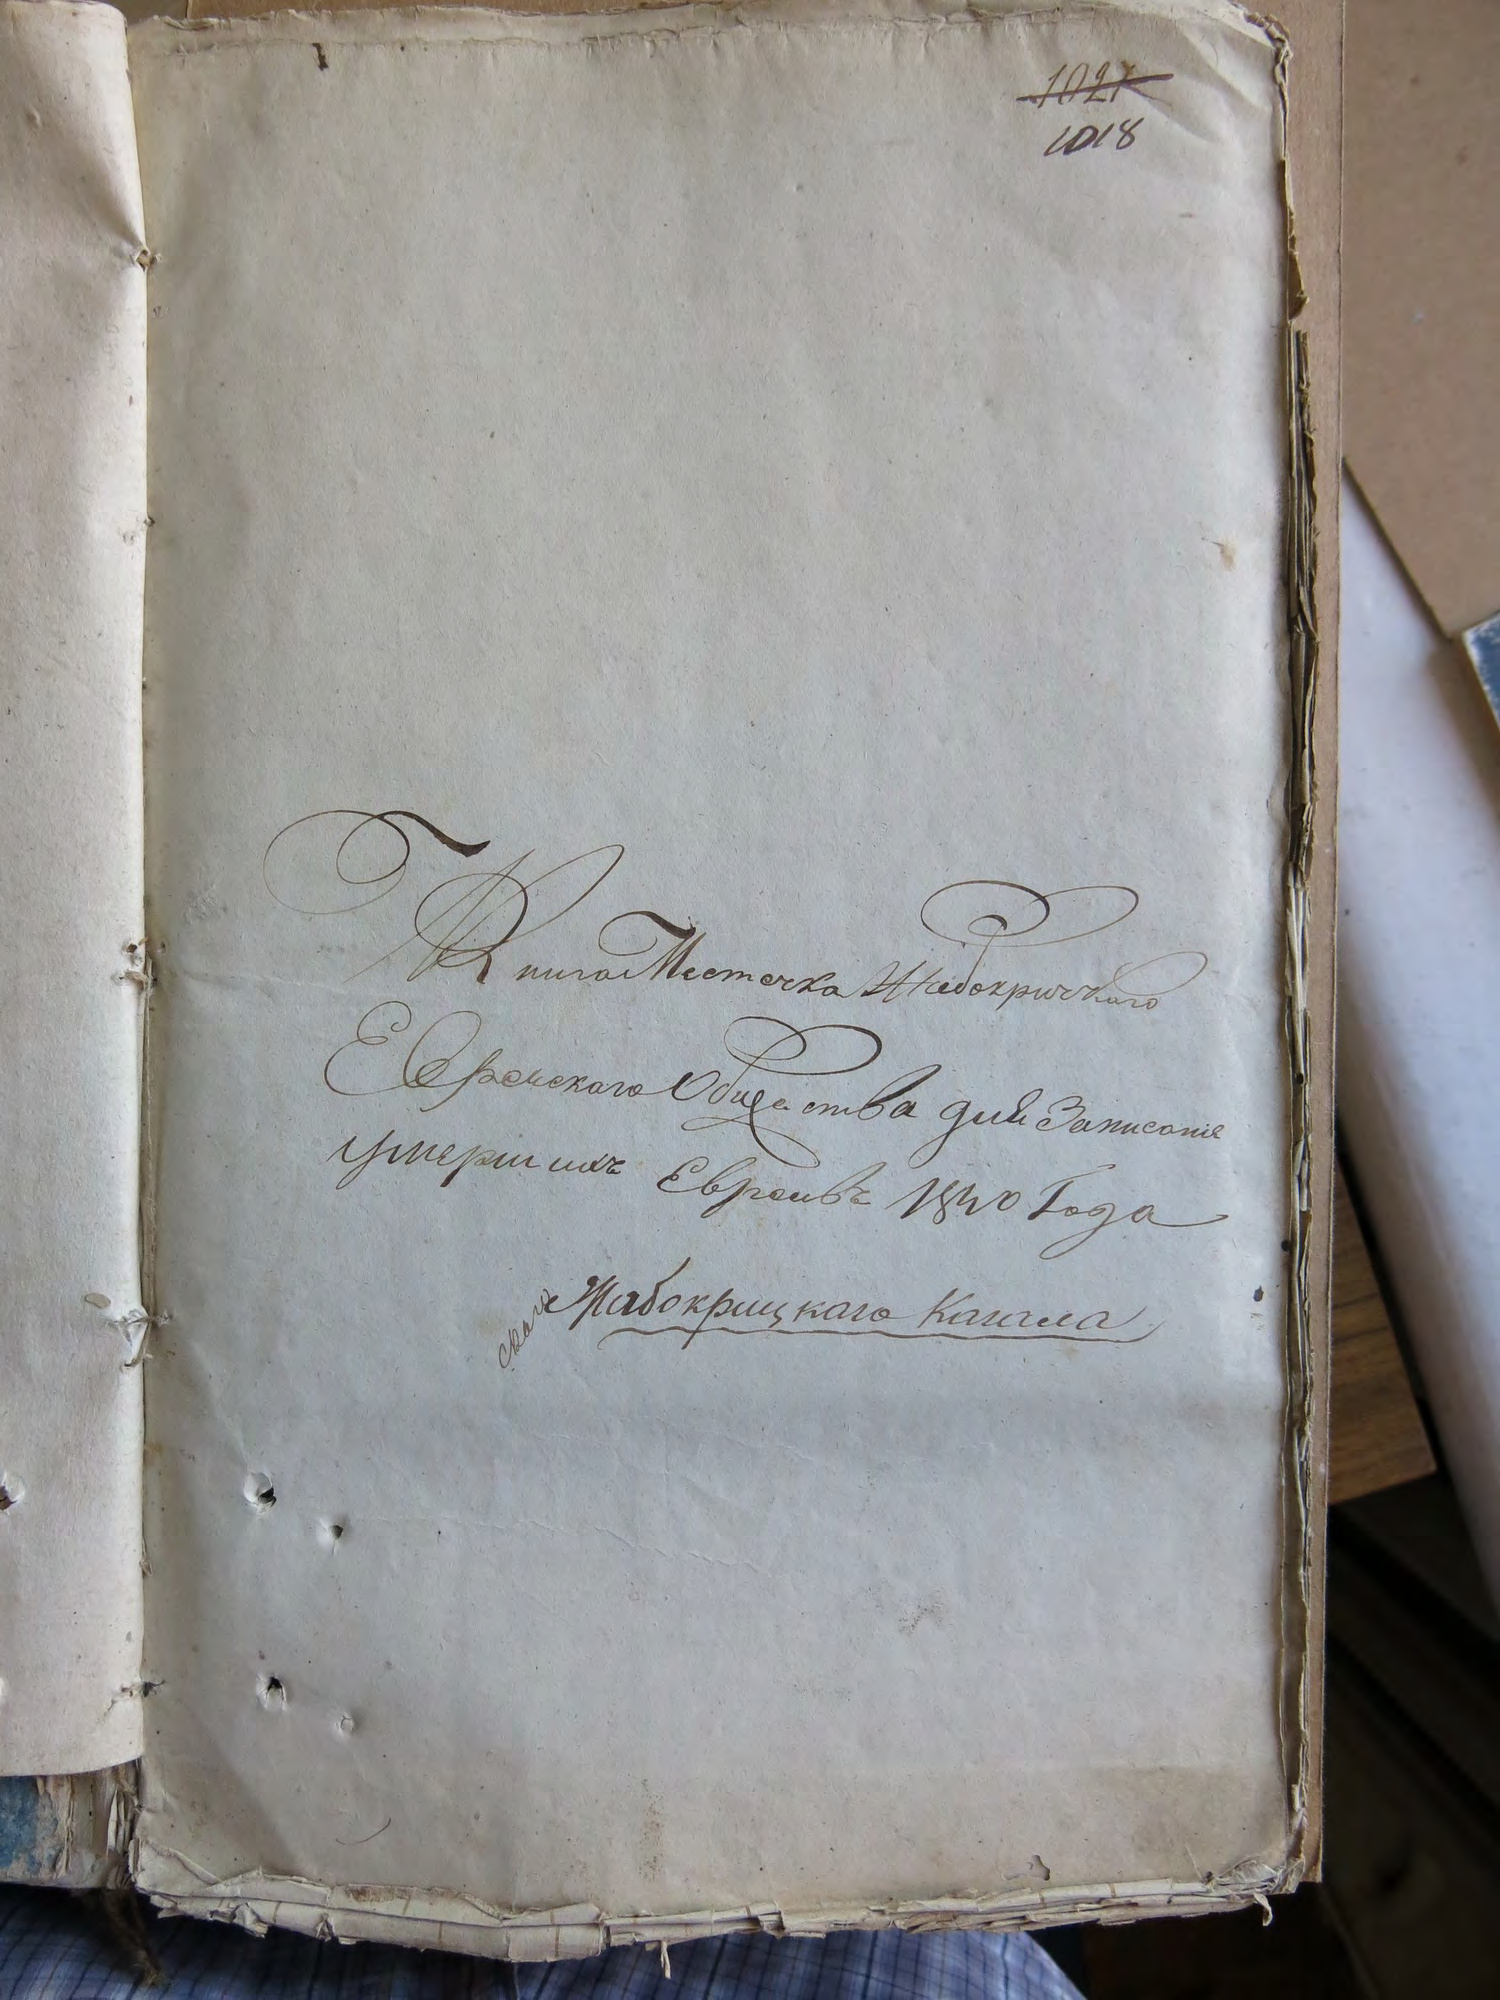 1021
1018
Книга Местечка Жабокричкаго
Еврейскаго Общества для Записание
умершихъ Евреивъ 1840 Года
Жабокрицкаго Кагала